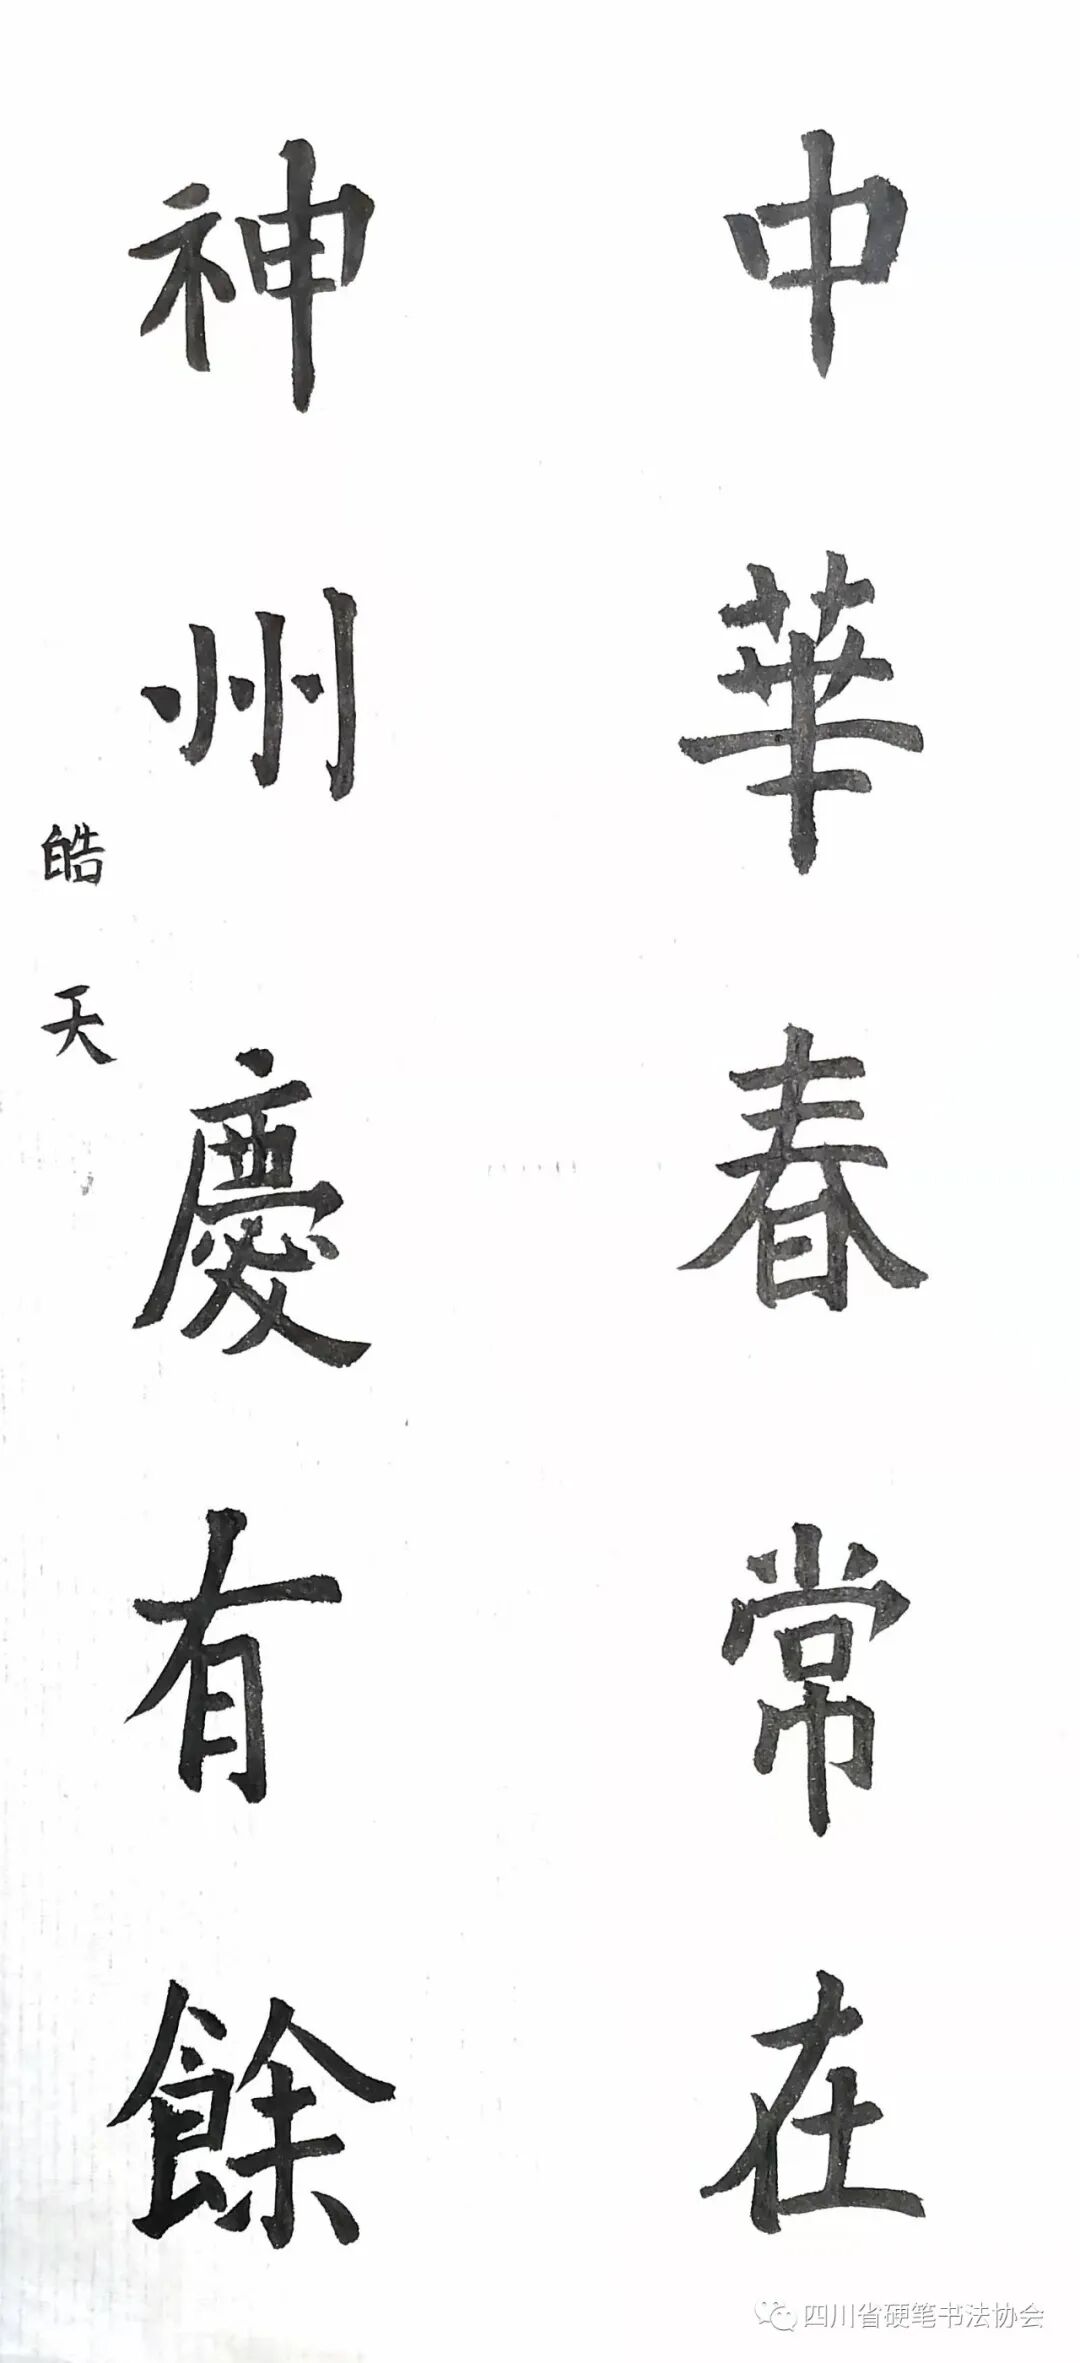 中華春常在
神州慶有餘
皓天
四川省硬笔书法协会